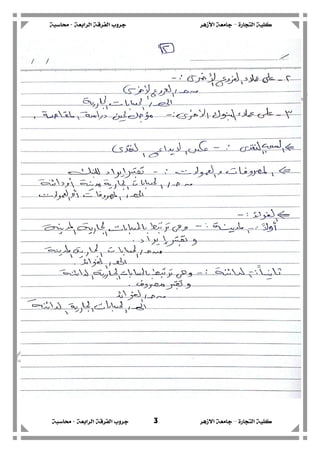 كلية التجارة - جامعة الأزهر
جروب الفرقة الرابعة - محاسبة
٢- على عملاء الفروع الأخرى :-
من حـ/ الفروع الأخرى
إلى حـ/ الحسابات الجارية
٣- على عملاء البنوك الأخرى :- مؤجل لحين دراسة المقاصة .
السحب النقدي :- عكس الإيداع النقدي
المصروفات والعمولات :- تعتبر إيراد للبنك
من حـ/ الحسابات الجارية مدينة أو دائنة
إلى حـ/ المصروفات أو العمولات
الفوائد :-
أولاً : المدينة :- وهي ترتبط بالحسابات الجارية المدينة
وتعتبر إيراد .
من حـ/ الحسابات الجارية المدينة
إلى حـ/ الفوائد .
ثانياً : الدائنة :- وهي ترتبط بالحسابات الجارية الدائنة
وتعتبر مصروف .
من حـ/ الفوائد
إلى حـ/ الحسابات الجارية الدائنة
كلية التجارة - جامعة الأزهر
3
جروب الفرقة الرابعة - محاسبة